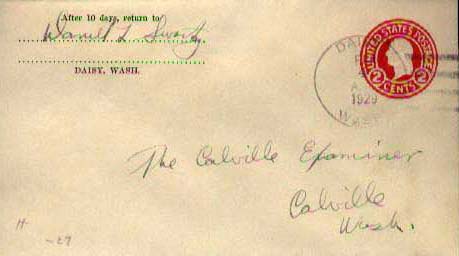 After 10 days, return to
Daniel L Swartz
DAISY, WASH.
UNITED STATES POSTAGE
2 CENTS 2
DAISY
1929
WASH
The Colville Examiner
Colville
Wash.
H
-27